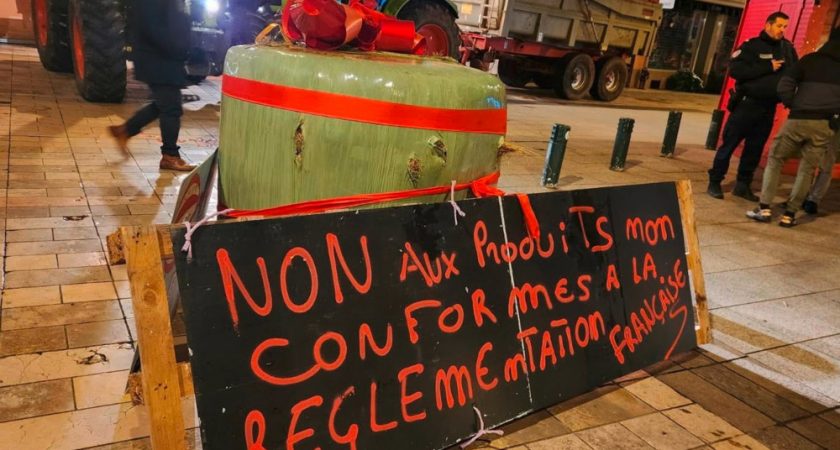 NON AUX PRODUITS MON
CONFORMES A LA
REGLEMENTATION FRANÇAISE
REGLE